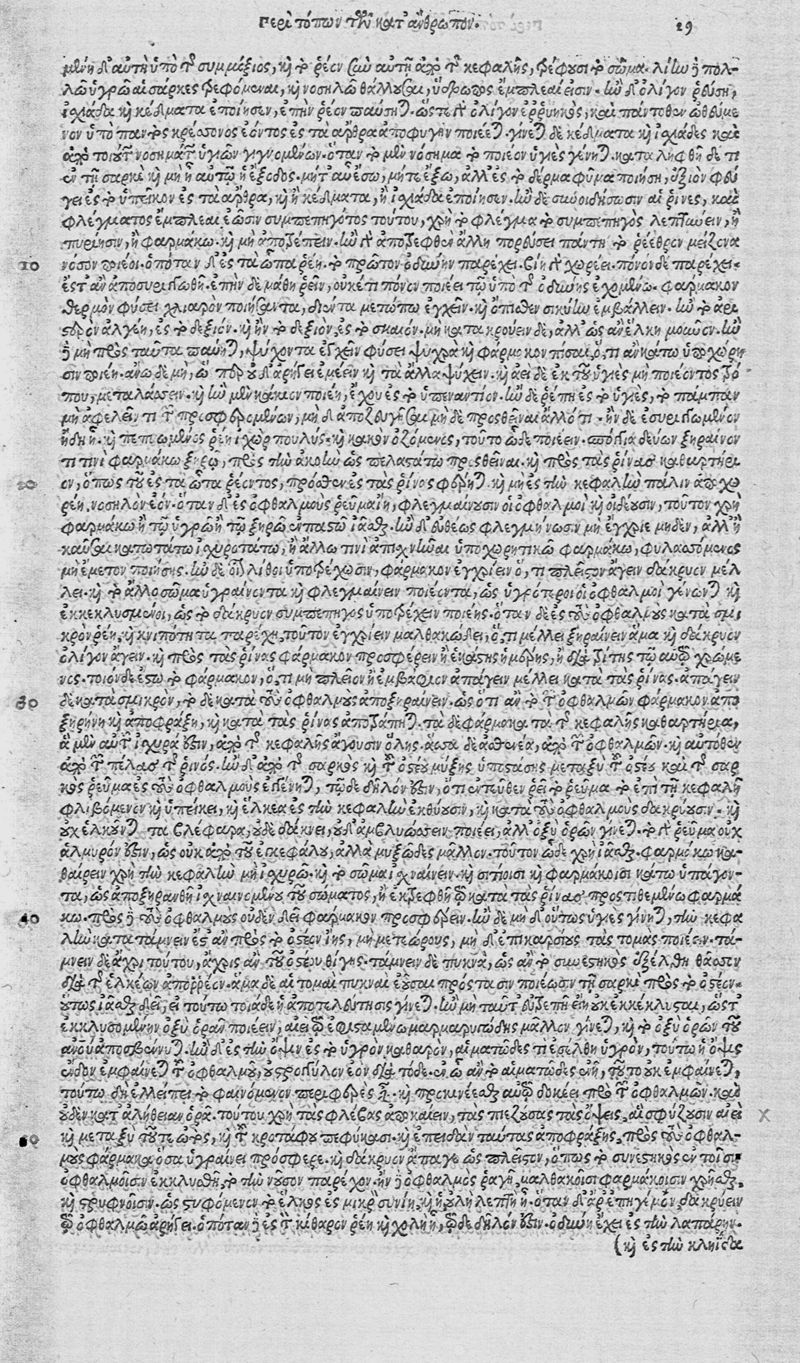 Περὶ τόπων τῶν κατ' ἄνθρωπον. 29
μένη δ' αὐτὴ ὑπὸ τῆς συμμίξιος, καὶ τὸ ῥέον σὺν αὐτῇ ἀπὸ τῆς κεφαλῆς, τρέφουσι τὸ σῶμα. ἢν δὲ πολ-
λῷ ὑγρῷ αἱ σάρκες τρεφόμεναι, καὶ νοσηλῷ θάλλουσαι, ὕδρωπος ἔμπλεαί εἰσιν. ἢν δ' ὀλίγον ῥεύσῃ,
ἰσχιάδα καὶ κέδματα ἐποίησεν, ἐπὴν ῥέον παύσηται. ὥστε δὲ ὀλίγον ἐρρυηκὸς, καὶ πάντοθεν ὠθεύμε
νον ὑπὸ παντὸς κρέσσονος ἐόντος ἐς τὰ ἄρθρα ἀποφυγὴν ποιέεται. γίνεται δὲ κέδματα καὶ ἰσχιάδες καὶ
ἀπὸ τοιούτων νοσημάτων ὑγιῶν γιγνομένων. ὅταν τὸ μὲν νόσημα τὸ ποιέον ὑγιὲς γένηται. καταληφθῇ δέ τι
ἐν τῇ σαρκὶ καὶ μὴ ᾖ αὐτῷ ἡ ἔξοδος. μήτ' αὖ ἔσω, μήτε ἔξω, ἀλλ' ἐς τὸ δέρμα φῦμα ποιήσῃ,
γει ἐς τὸ ὑπεῖκον ἐς τὰ ἄρθρα, καὶ ἢ κέδματα, ἢ ἰσχιάδα ἐποίησεν. ἢν δὲ αἱ ῥῖνες, καὶ
φλέγματος ἔμπλεαι ἔωσιν συμπεπηγότος τούτου, χρὴ τὸ φλέγμα τὸ συμπεπηγὸς λεπτύνειν, ἢ
πυρίῃσιν, ἢ φαρμάκῳ. καὶ μὴ ἀποτρέπειν. ἢν δὲ ἀποτρεφθὲν ἄλλῃ πορεύσει πάντῃ τὸ ῥέεθρον μείζονα
10 νόσον ποιέει. ὁπόταν δ' ἐς τὰ ὦτα ῥέῃ. τὸ πρῶτον ὀδύνην παρέχει. βίῃ δὲ χωρέει. πόνον δὲ παρέχει.
ἔστ' ἂν ἀποσυριγγωθῇ. ἐπὴν δὲ μάθῃ ῥεῖν, οὐκέτι πόνον ποιέει τῷ ὑπὸ τῆς ὀδύνης ἐχομένῳ. φάρμακον
θερμὸν φύσει χλιαρὸν ποιήσαντα, διέντα μετώπῳ ἐγχεῖν. καὶ ὄπισθεν σικύην ἐμβάλλειν. ἢν τὸ ἀρι
στερὸν ἀλγέῃ, ἐς τὸ δεξιόν. καὶ ἢν τὸ δεξιὸν, ἐς τὸ σκαιόν. μὴ κατακρούειν δὲ, ἀλλ' ὡς ἂν ἕλκῃ μοῦνον. ἢν
δὲ μὴ πρὸς ταῦτα παύηται, ψύχοντα ἐγχεῖν φύσει ψυχρὰ καὶ φάρμακον πῖσαι, ὅ, τι ἂν κάτω ὑποχώρη
σιν ποιέῃ. ἄνω δὲ μὴ, ὥς περ οὐδ' ἀρήγει ἐμέειν καὶ τὰ ἄλλα ψύχειν. καὶ αἰεὶ δὲ ἐκ τοῦ ὑγιὲς μὴ ποιέοντος τρό
που, μεταλάσσειν. καὶ ἢν μὲν κάκιον ποιέῃ, ἔχου ἐς τὸ ὑπεναντίον. ἢν δὲ ῥέπῃ ἐς τὸ ὑγιὲς, τὸ πάμπαν
μὴ ἀφελεῖν τι τῶν προσφερομένων, μὴ δ' ἀποζευγνύναι μὴ δὲ προσθεῖναι ἄλλό τι. ἢν δὲ ἐσυριγγωμένον
ἤδη ᾖ. καὶ πεπτωμένος ῥέῃ ἰχὼρ πουλὺς. καὶ κακὸν ὀζόμενος, τοῦτο ὧδε ποιέειν. σπόγγια δεύων ξηραῖνον
τι τινὶ φαρμάκῳ ξηρῷ, πρὸς τὴν ἀκοὴν ὡς πελαστάτω προσθεῖναι. καὶ πρὸς τὰς ῥῖνας καθαρτήρι
20 ον, ὅπως τοῦ ἐς τὰ ὦτα ῥέοντος, πρόσθεν ἐς τὰς ῥῖνας φέρηται. καὶ μὴ ἐς τὴν κεφαλὴν πάλιν ἀποχω
ρέῃ, νοσηλὸν ἐόν. ὅταν δ' ἐς ὀφθαλμοὺς ῥεῦμα ἴῃ, φλεγμαίνουσιν οἱ ὀφθαλμοὶ καὶ οἰδεῦσιν, τοῦτον χρὴ
φαρμάκῳ ἢ τῷ ὑγρῷ ἢ τῷ ξηρῷ ἰᾶσθαι. ἢν δ' εὐθέως φλεγμήνωσιν μὴ ἐγχρίειν μηδὲν, ἀλλ' ἢ
καῦσαι κατωτάτω ἰσχυροτάτως, ἢ ἄλλῳ τινὶ ἀπισχνῶσαι ὑποχωρητικῷ φαρμάκῳ, φυλασσόμενος
μὴ ἔμετον ποιήσῃς. ἢν δὲ οἷον λίθοι ὑποτρέχωσιν, φάρμακον ἐγχρίειν ὅ, τι πλεῖστον ἄγειν δάκρυον μέλ
λει. καὶ τὸ ἄλλο σῶμα ὑγραίνοντα καὶ φλεγμαίνειν ποιέοντα, ὡς ὑγρότεροι οἱ ὀφθαλμοὶ γένωνται καὶ
ἐκκεκλυσμένοι, ὡς τὸ δάκρυον συμπεπηγὸς ὑποτρέχειν ποιέῃς. ὅταν δὲ ἐς τοὺς ὀφθαλμοὺς κατὰ σμι
κρὸν ῥέῃ, καὶ κνιπότητα παρέχῃ, τοῦτον ἐγχρίειν μαλθακώδει, ὅ, τι μέλλει ξηραίνειν ἅμα καὶ δάκρυον
ὀλίγον ἄγειν. καὶ πρὸς τὰς ῥῖνας φάρμακον προσφέρειν ἢ ἑκάστης ἡμέρης, ἢ διὰ τρίτης τῷ αὐτῷ χρώμε
νος. τοιόνδε ἔστω τὸ φάρμακον, ὅ, τι μὴ πλεῖον ἢ ὀξύβαφον ἀπάγειν μέλλει κατὰ τὰς ῥῖνας. ἀπάγειν
30 δὲ κατὰ σμικρὸν, τὸ δὲ κατὰ τοὺς ὀφθαλμοὺς ἀποξηραίνειν. ὡς ὅ τι ἂν τὸ τῶν ὀφθαλμῶν φάρμακον ἀπο
ξηρήνῃ καὶ ἀποφράξῃ, καὶ κατὰ τὰς ῥῖνας ἀποτράπηται. τὰ δὲ φάρμακα τὰ τῆς κεφαλῆς καθαρτήρια,
ἃ μὲν αὐτῶν ἰσχυρά ἐστιν, ἀπὸ τῆς κεφαλῆς ἄγουσιν ὅλης. ἅσσα δὲ ἀσθενέα, ἀπὸ τῶν ὀφθαλμῶν. καὶ αὐτόθεν
ἀπὸ τῶν πέλας τῆς ῥινός. ἢν δ' ἀπὸ τῆς σαρκὸς καὶ τοῦ ὀστέου μύξης ὑποστάσης μεταξὺ τοῦ ὀστέου καὶ τῆς σαρ
κὸς ῥεῦμα ἐς τοὺς ὀφθαλμοὺς γένηται, τῷδε δῆλόν ἐστιν, ὅτι ἐντεῦθεν ῥεῖ τὸ ῥεῦμα. τὸ ἐπὶ τῇ κεφαλῇ
φλιβόμενον καὶ ὑπείκει, καὶ ἕλκεα ἐς τὴν κεφαλὴν ἐκθύουσιν, καὶ κατὰ τοὺς ὀφθαλμοὺς δακρύουσιν. καὶ
οὐχ ἑλκοῦνται τὰ βλέφαρα, οὐδὲ δάκνει, οὐδ' ἀμβλυώσσειν ποιέει, ἀλλ' ὀξὺ ὁρῶν γίνεται. τὸ δὲ ῥεῦμα οὐχ
ἁλμυρόν ἐστιν, ὡς οὐκ ἀπὸ τοῦ ἐγκεφάλου, ἀλλὰ μυξῶδες μᾶλλον. τοῦτον ὧδε χρὴ ἰᾶσθαι. φαρμάκῳ κα-
θαίρειν χρὴ τὴν κεφαλὴν μὴ ἰσχυρῷ. καὶ τὸ σῶμα ἰσχναίνειν. καὶ σιτίοισι καὶ φαρμάκοισι κάτω ὑπάγον-
τα, ὡς ἀποξηρανθῇ ἰσχναινομένου τοῦ σώματος, ἢ ἐκτρεφθῇ τῷ κατὰ τὰς ῥῖνας προστιθεμένῳ φαρμά
40 κῳ. πρὸς δὲ τοὺς ὀφθαλμοὺς οὐδὲν δεῖ φάρμακον προσφέρειν. ἢν δὲ μὴ δ' οὕτως ὑγιὲς γίνηται, τὴν κεφα
λὴν κατατάμνειν ἔστ' ἂν πρὸς τὸ ὀστέον ἵῃς, μὴ μετεώρους, μὴ δ' ἐπικαρσίους τὰς τομὰς ποιέειν. τά-
μνειν δὲ ἄχρι τούτου, ἄχρις ἂν τοῦ ὀστέου θίγῃς. τάμνειν δὲ πυκνὰ, ὡς ἂν τὸ συνεστηκὸς ἐξέλθῃ θᾶσσον
διὰ τῶν ἑλκέων ἀπόρρεον. ἅμα δὲ αἱ τομαὶ πυκναὶ ἐοῦσαι πρόστασιν ποιέωσιν τῇ σαρκὶ πρὸς τὸ ὀστέον.
οὕτως ἰᾶσθαι δεῖ, εἰ τούτῳ τοιάδε ἡ ἀποτελεύτησις γίνεται. ἢν μὴ ταύτῃ ᾖ ἐκκέκλυσται, ὥστε
ἐκκλυσομένην ὀξὺ ὁρᾶν ποιέειν, αἰεὶ μαρμαρυγώδης μᾶλλον γίνεται, καὶ τὸ ὀξὺ ὁρῶν τοῦ
ἀνθρώπου ἀποσβέννυται. ἢν δ' ἐς τὴν ὄψιν ἐς τὸ ὑγρὸν καθαρὸν, αἱματῶδές τι ἐσέλθῃ ὑγρὸν, τούτῳ ἡ ὄψις
ἔνδον ἐμφαίνεται τοῦ ὀφθαλμοῦ, οὐ στρογγύλον ἐὸν διὰ τόδε. ἐν ᾧ ἂν τὸ αἱματῶδες ἐνῇ, τοῦτο οὐκ ἐμφαίνεται,
τούτῳ δὴ ἐλλείπει τὸ φαινόμενον περιφερὲς εἶναι. καὶ προκινέεσθαι αὐτῷ δοκέει πρὸ τῶν ὀφθαλμῶν. καὶ
οὐδὲν κατ' ἀλήθειαν ὁρᾷ. τούτου χρὴ τὰς φλέβας ἀποκαίειν, τὰς πιεζούσας τὰς ὄψιας, αἳ σφύζουσιν αἰεὶ
50 καὶ μεταξὺ τοῦ τε ὠτὸς, καὶ τοῦ κροτάφου πεφύκασι. καὶ ἐπειδὰν ταύτας ἀποφράξῃς, πρὸς τοὺς ὀφθαλ-
μοὺς φάρμακα ὅσα ὑγραίνει πρόσφερε. καὶ δάκρυον ἄπαγε ὡς πλεῖστον, ὅπως τὸ συνεστηκὸς ἐν τοῖσι
ὀφθαλμοῖσιν ἐκκλυσθῇ, τὸ τὴν νοῦσον παρέχον. ἢν δ' ὀφθαλμὸς ῥαγῇ, μαλθακοῖσι φαρμάκοισιν χρῆσθαι.
καὶ στρυφνοῖσιν. ὡς στυφόμενον τὸ ἕλκος ἐς μικρὸν συνίῃ, καὶ ἡ οὐλὴ λεπτὴ ᾖ. ὅταν δ' ἄργεμον, δακρύειν
τῷ ὀφθαλμῷ ἀρήγει. ὁπόταν δὲ ἐς τὸν κίθαρον ῥέῃ καὶ χολὴ ᾖ, τῷδε δῆλόν ἐστιν. ὀδύνη ἔχει ἐς τὴν λαπάρην.
(καὶ ἐς τὴν κληῗδα